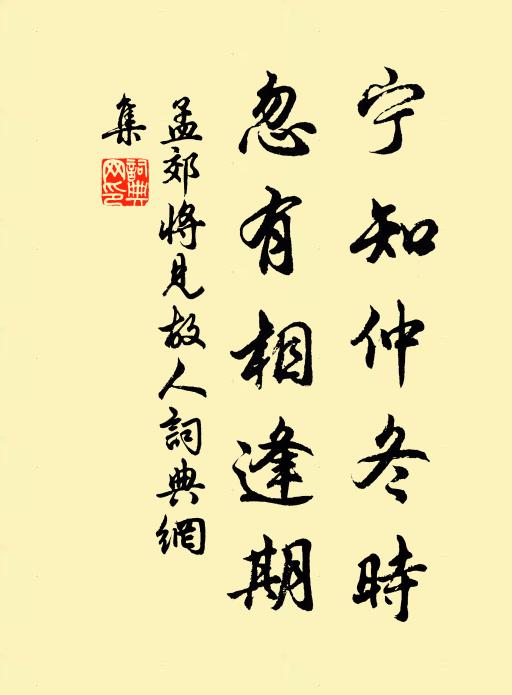 宁知仲冬時
忽有相逢期
孟郊將見故人詞典網
集
詞典網印